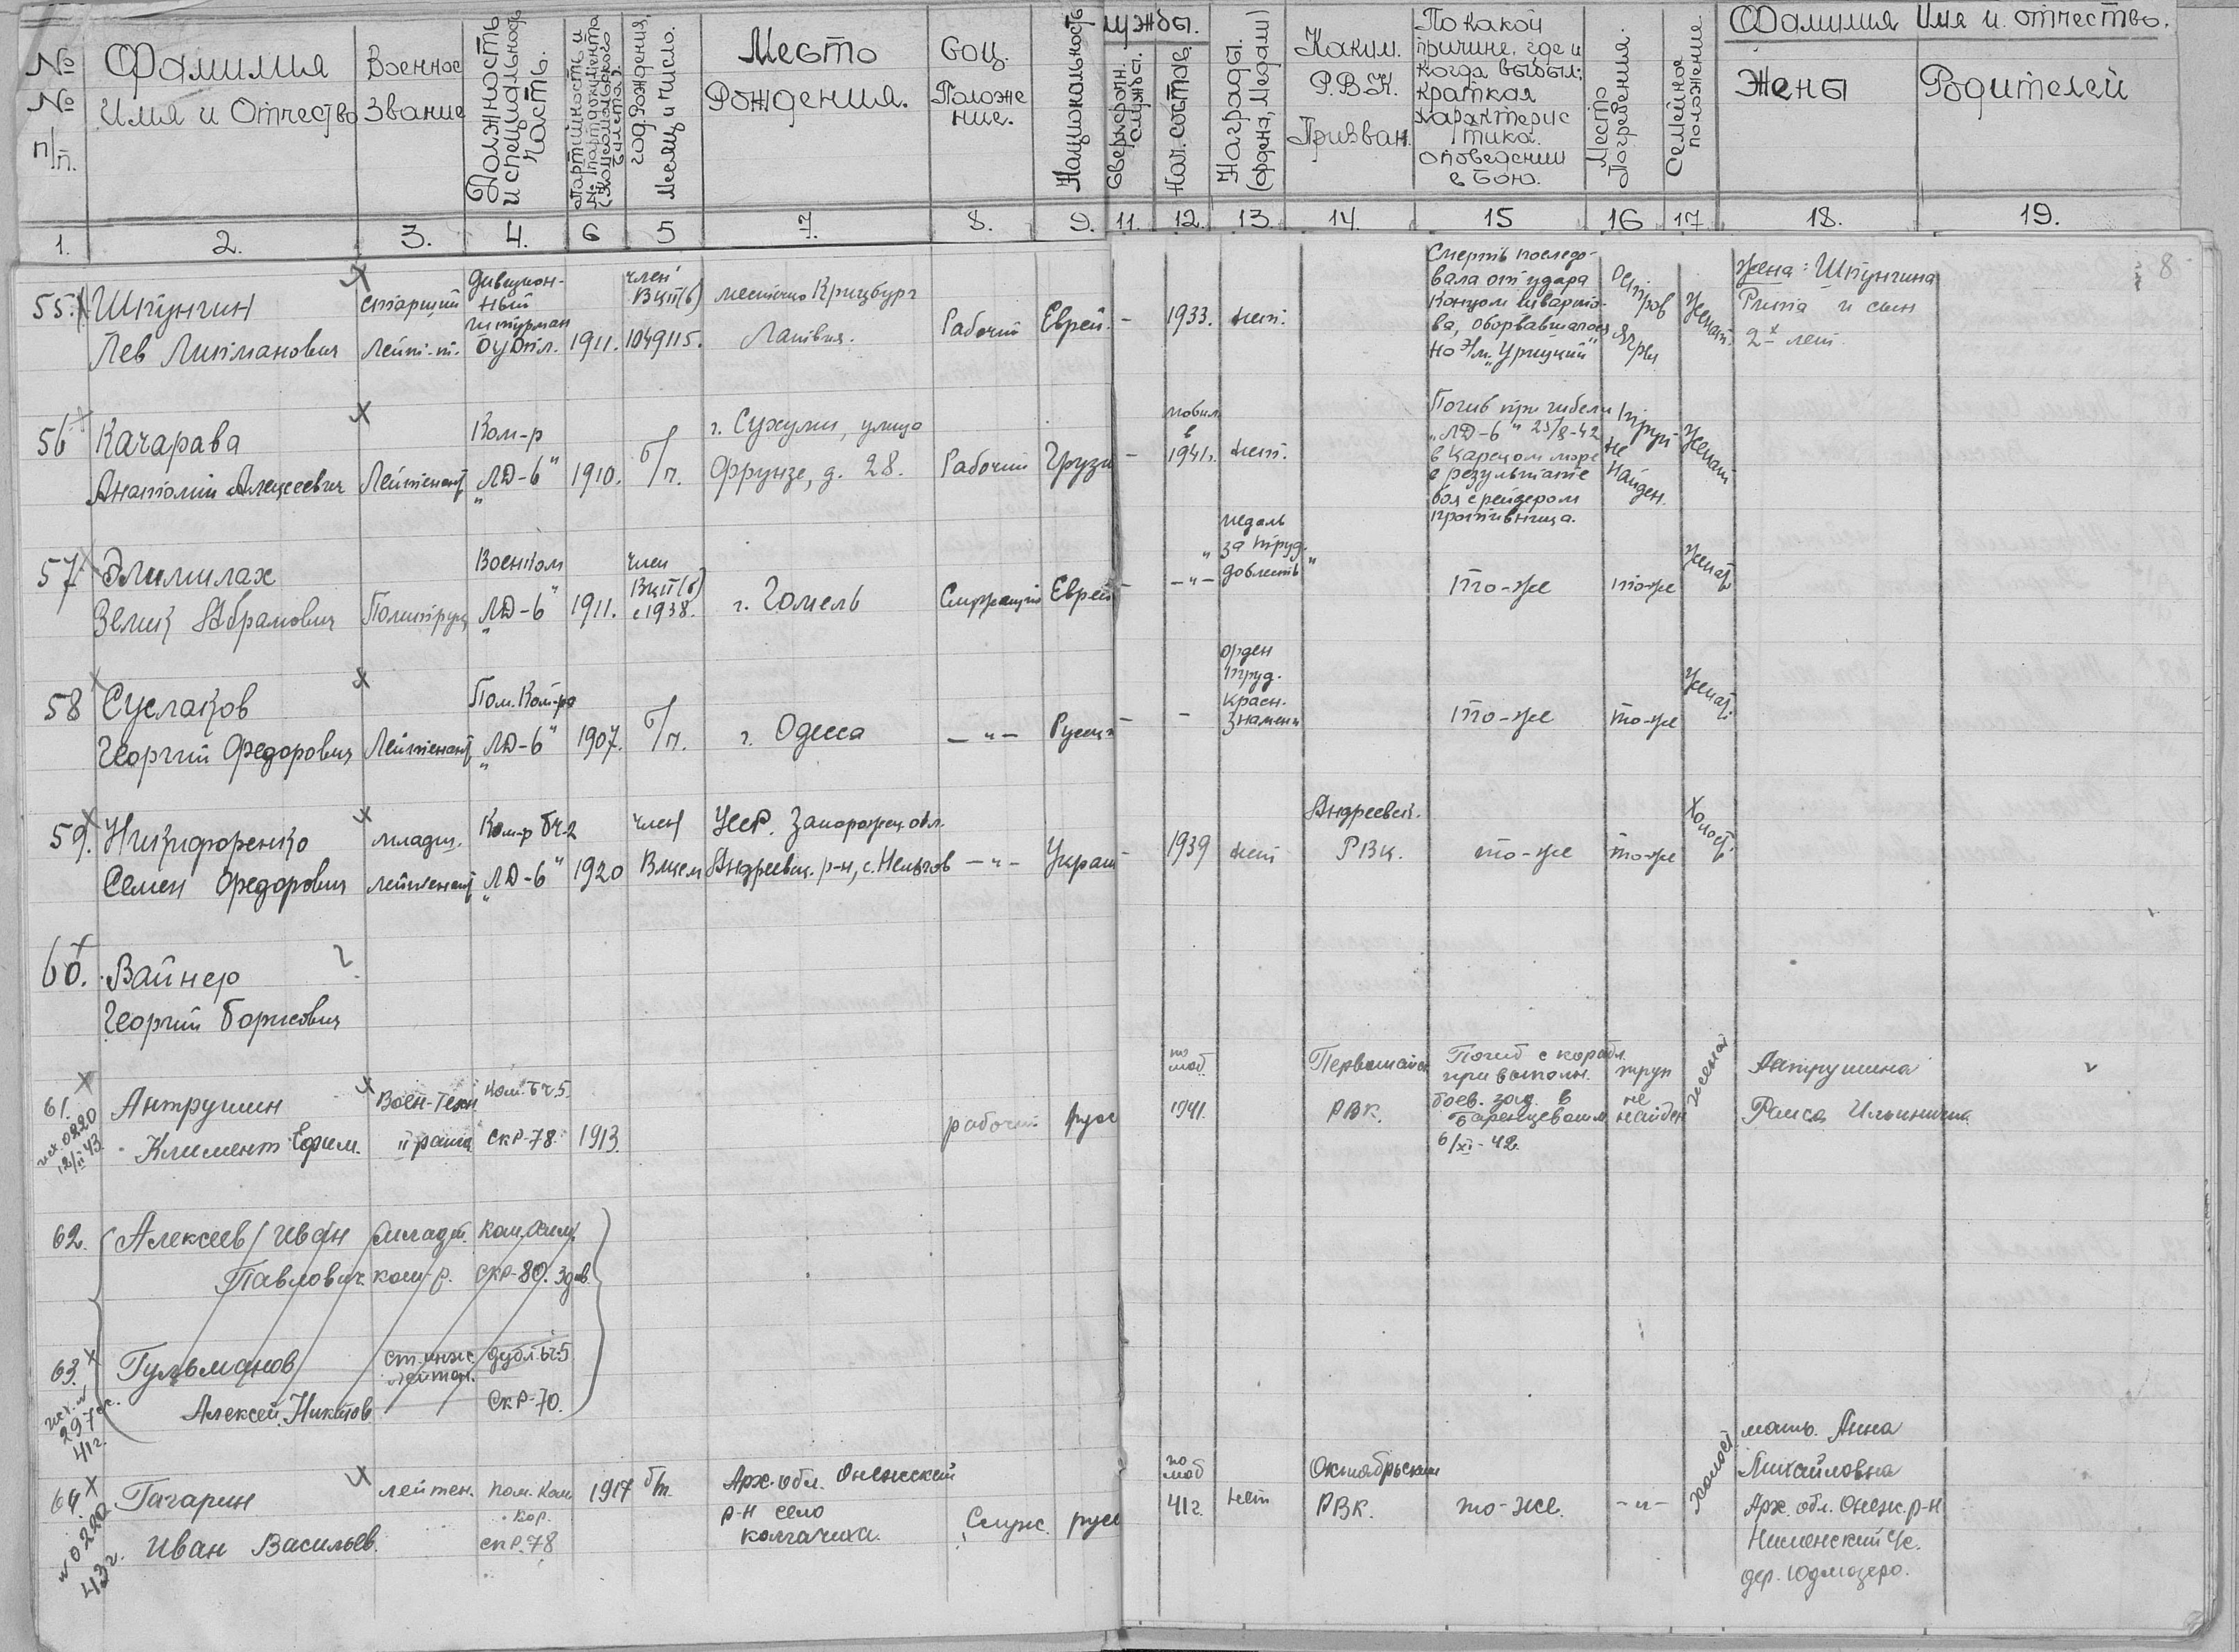 № № п/п.
Фамилия Имя и Отчество
Военное Звание
Должность и специальность часть.
Партийность и № партдокумента (комсомольского билета).
год рождения, Месяц и число.
Место Рождения.
Соц. Положение.
Национальность
службы.
Сверхсрочн. службы.
Нач. состав.
Награды. (ордена, Медали)
Каким. Р.В.К. Призван.
По какой
причине, где и
когда выбыл;
краткая
характерис
тика.
о поведении
в бою.
Место Погребения.
Семейное положение
Фамилия Имя и отчество.
Жены
Родителей
1. 2. 3. 4. 6 5 7. 8. 9. 11. 12. 13. 14. 15 16 17 18. 19.
8
55. Штунгин
Лев Липманович
старший
Лейт-т.
дивизион-
ный
штурман
1911.
член
ВКП(б)
1049115.
местечко Крицбург
Латвия.
Рабочий
Еврей.
-
1933.
нет.
Смерть последо-
вала от удара
концом швартo-
ва, оборвавшегося
на Э/м. "Урицкий"
Остров
Ягры
Женат.
Жена: Штунгина
Рита и сын
2х лет.
56 Качарава
Анатолий Алексеевич
Лейтенант
Ком-р
"ЛД-6"
1910.
б/п.
г. Сухуми, улица
Фрунзе, д. 28.
Рабочий
Грузи
-
мобил.
в
1941г.
нет.
Погиб при гибели
"ЛД-6" 25/8-42
в Карском море
в результате
боя с рейдером
противника.
труп
не
найден.
Женат
57 Элимилах
Зелик Абрамович
Политрук
Военком
"ЛД-6"
1911.
член
ВКП(б)
с 1938.
г. Гомель
Служащий
Еврей
-
-"-
медаль
"за труд.
доблесть"
то-же
то-же
Женат.
58 Суслаков
Георгий Федорович
Лейтенант
Пом. Ком-ра
"ЛД-6"
1907.
б/п.
г. Одесса
-"-
Русски
-
-
орден
труд.
красн.
Знамени
то-же
то-же
Женат.
59. Никифоренко
Семен Федорович
младш.
лейтенант
Ком-р БЧ-2
"ЛД-6"
1920
член
Влксм
УССР. Запорожск. обл.
Андреевск. р-н, с.
-"-
Украи
-
1939
нет
Андреевск.
РВК.
то-же
то-же
Холост.
60. Вайнер ?
Георгий Борисович
61. Антрушин
исх. 0220
12/II 43.
Климент Ефим.
Воен-Техн
II ранга
Ком. БЧ.5.
СКР-78.
1913.
рабочий
рус
по
моб.
1941.
Первомайск
РВК.
Погиб с корабл.
при выполн.
боев. зад. в
Баренцевом м.
6/XI-42.
труп
не
найден
женат
Антрушина
Раиса Ильинична
62. Алексеев Иван
Павлович
младш.
ком-р.
ком.
СКР-80.
63. Гульманов
Алексей Никитов
ст. инж.
лейтен.
дубл. БЧ-5
СКР-70.
297
41г.
64 Гагарин
№ 0220
43г.
Иван Васильев.
лейтен.
пом. ком.
кор.
СКР.78
1917
б/п.
Арх. обл. Онежский
р-н село
Колгачиха.
Служ.
русс
по
моб
41г.
нет
Октябрьским
РВК.
то-же.
-"-
холост
мать. Анна
Михайловна
Арх. обл. Онежк. р-н
Нименский с/с.
дер. Юдмозеро.